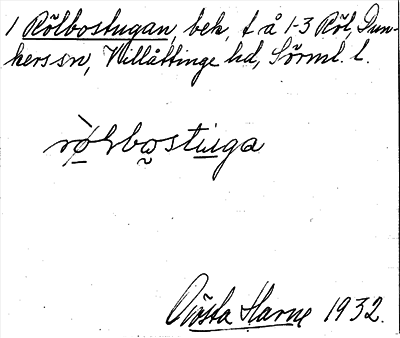 1 Rölbostugan, bek, t å 1-3 Röl, Dun-
kers sn, Villåttinge hd, Sörml. l.
rö̀lbostuga
Gösta Harne 1932.